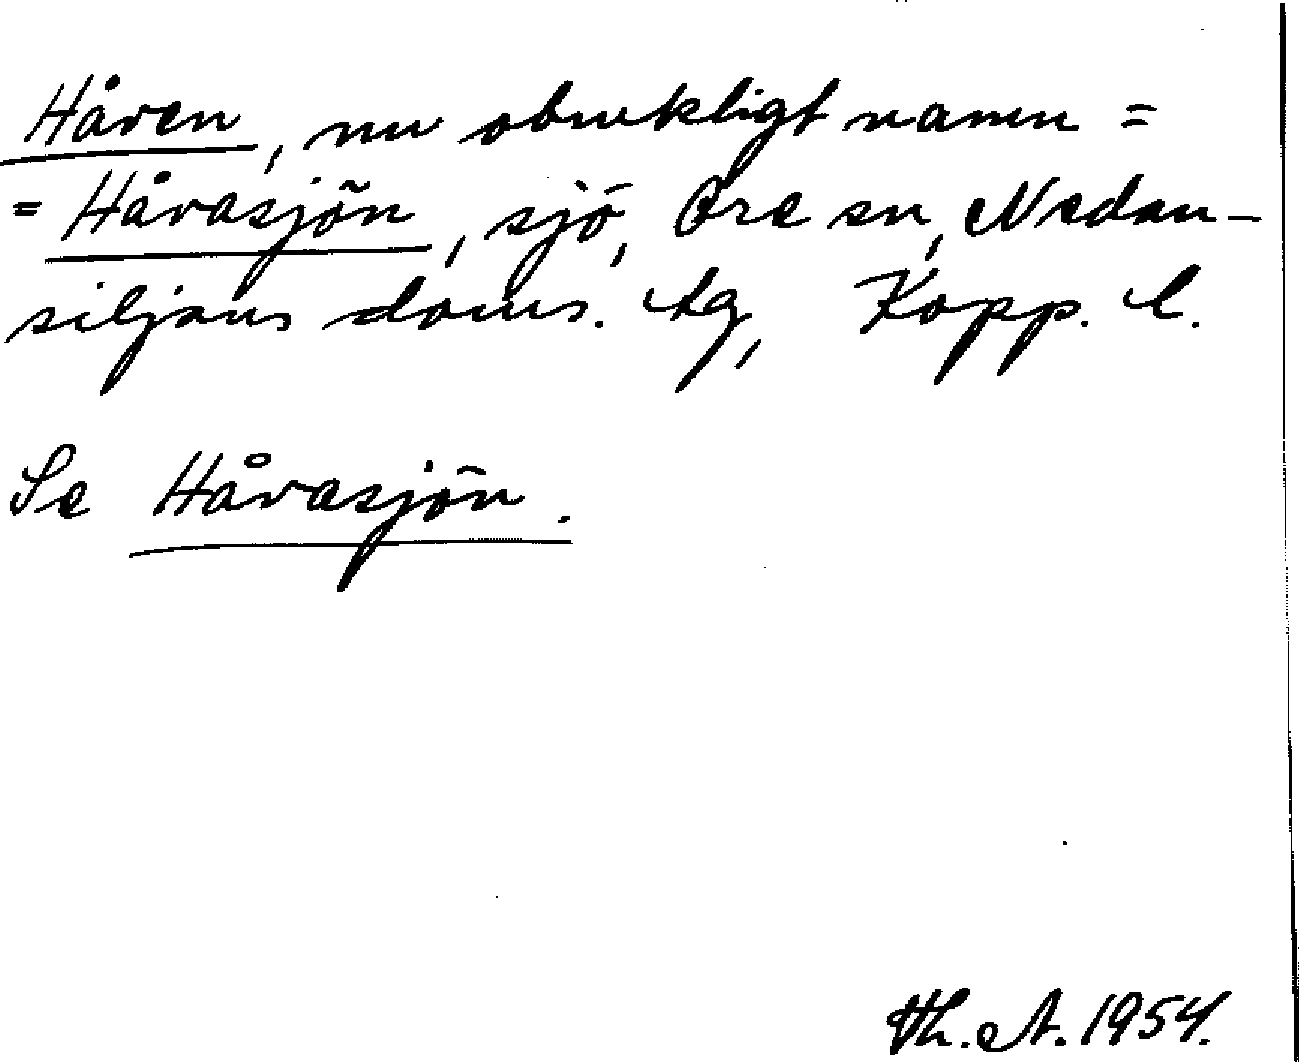 Håven, nu obrukligt namn =
= Håvasjön, sjö, Ore sn, Nedan-
siljans doms. tg, Kopp. l.
Se Håvasjön.
Th. A. 1954.